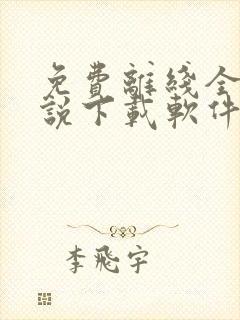 免費離綫全
說下載軟件
李飛宇